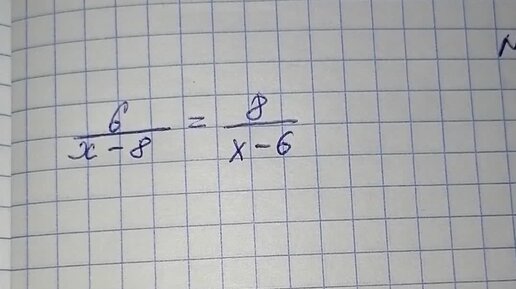 6/(x-8) = 8/(x-6)